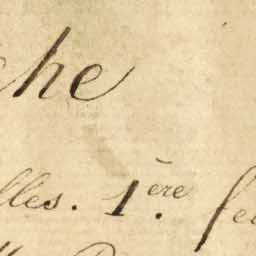 he
lles. 1.ère fe